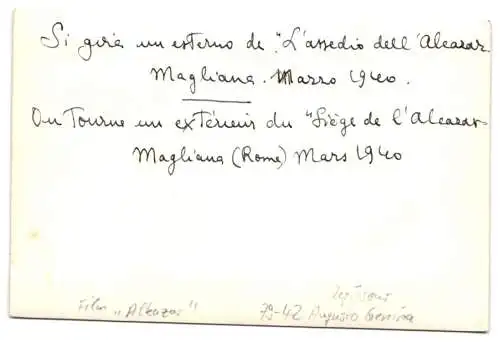 Si gira un esterno de "L'assedio dell'Alcazar
Magliana. Marzo 1940.
On Tourne un extérieur du "Siège de l'Alcazar
Magliana (Rome) Mars 1940
Film "Alcazar"
79-42 Augusto Genina